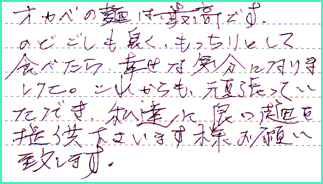 オカベの麺は最高です。
のどごしも良く、もっちりとして
食べたら、幸せな気分になりま
した。これからも、頑張ってい
ただき、私達に良い麺を
提供下さいます様お願い
致します。